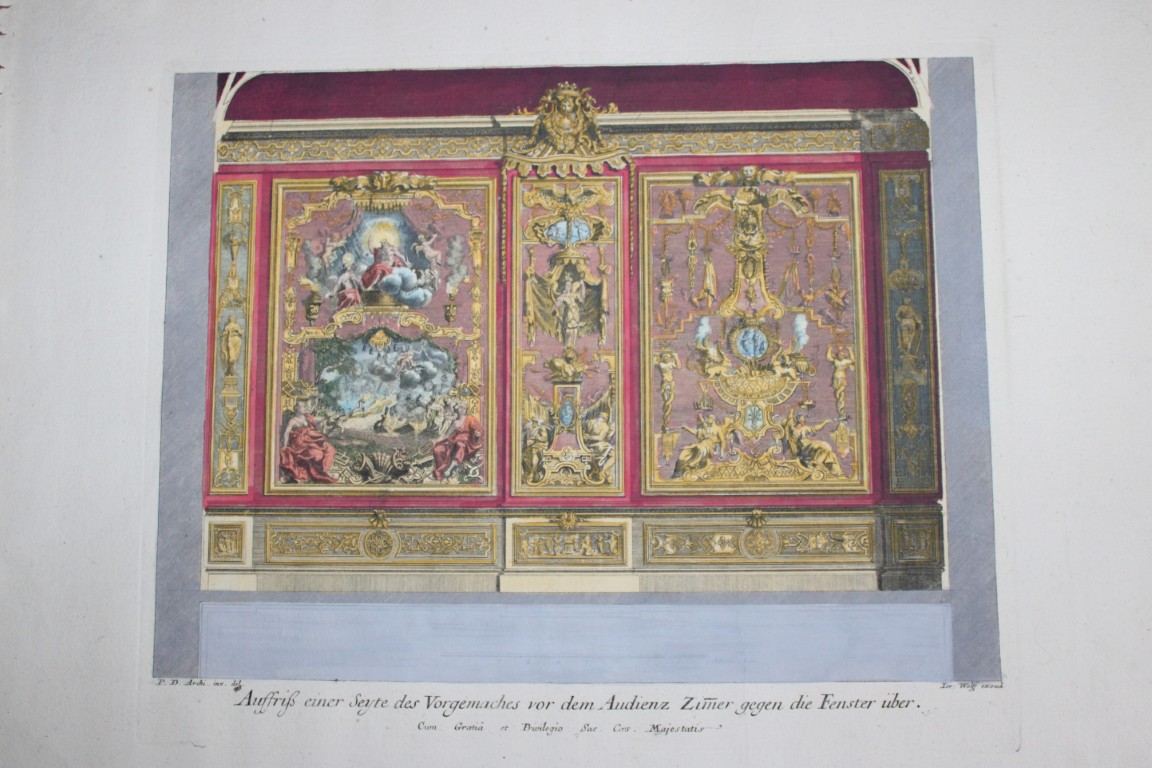 P. D. Archi. inv. del.
Ier. Wolff excud.
Auffriß einer Seyte des Vorgemaches vor dem Audienz Zim̅er gegen die Fenster über.
Cum Gratiâ et Privilegio Sac. Cæs. Majestatis